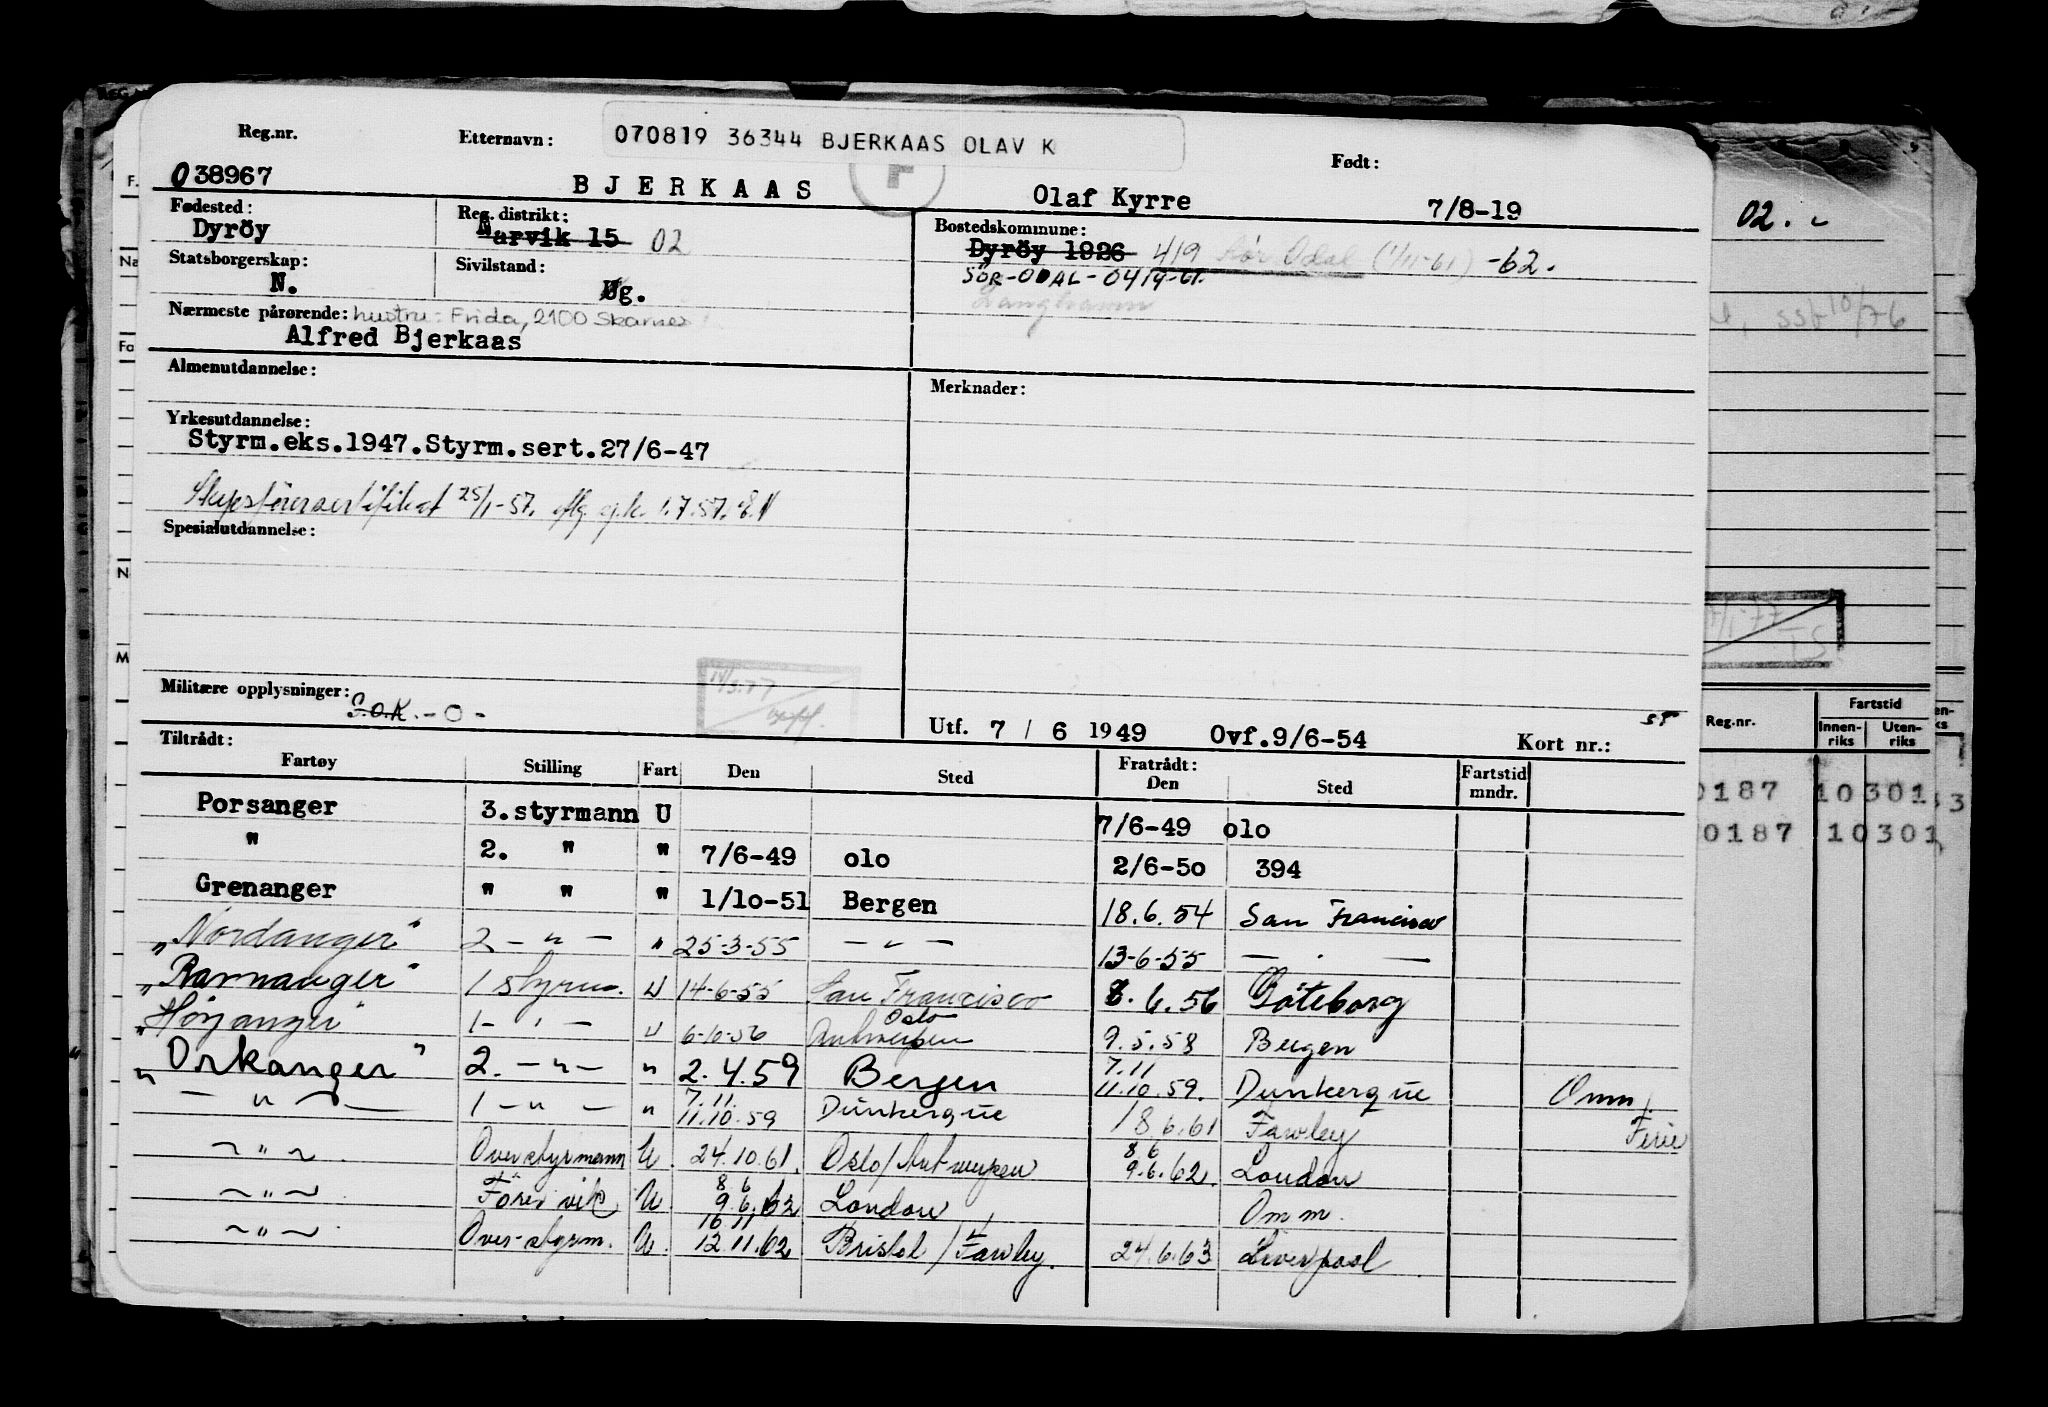 Reg.nr. Etternavn: 070819 36344 BJERKAAS OLAV K Født:
038967 BJERKAAS F Olaf Kyrre 7/8-19
Fødested: Reg. distrikt: Bostedskommune:
Dyröy Narvik 15 02 Dyröy 1926 419 Sør Odal (1/11-61) -62.
SÖR-ODAL-0419-61.
Statsborgerskap: Sivilstand:
N. Ug.
Nærmeste pårørende: hustru: Frida, 2100 Skarnes
Alfred Bjerkaas
Almenutdannelse: Merknader:
Yrkesutdannelse:
Styrm.eks.1947.Styrm.sert.27/6-47
Skipsförersertifikat 25/1-57.
Spesialutdannelse:
Militære opplysninger: S.O.K. - O -
Utf. 7 / 6 1949 Ovf.9/6-54 Kort nr.:
Tiltrådt: Fratrådt:
Fartøy Stilling Fart Den Sted Den Sted Fartstid mndr.
Porsanger 3.styrmann U 7/6-49 olo
" 2. " " 7/6-49 olo 2/6-50 394
Grenanger " " " 1/10-51 Bergen 18.6.54 San Francisco
"Nordanger" 2 - " - " 25-3-55 - " - 13-6-55 - " -
"Ravnanger" 1 styrm. U 14-6-55 San Francisco 8.6.56 Göteborg
"Høyanger" 1 - " - U 6-10-56 Oslo Antwerpen 9.5.58 Bergen
"Orkanger" 2. - " - " 2.4.59 Bergen 7.11 11.10.59. Dunkerque Omm.
" - " - 1 - " - " 7.11. 11.10.59 Dunkerque 18.6.61 Fawley Ferie
- " - Overstyrmann U. 24.10.61. Oslo/Antwerpen 8 6 9.6.62. London
- " - Förer vik U 8 6 9.6.62 London Omm.
- " - Over-styrm. U. 16 11 12.11.62 Bristol / Fawley. 24.6.63 Liverpool
02. -
10/76
Reg.nr. Fartstid
Innen-riks Uten-riks
0187 10301
0187 10301